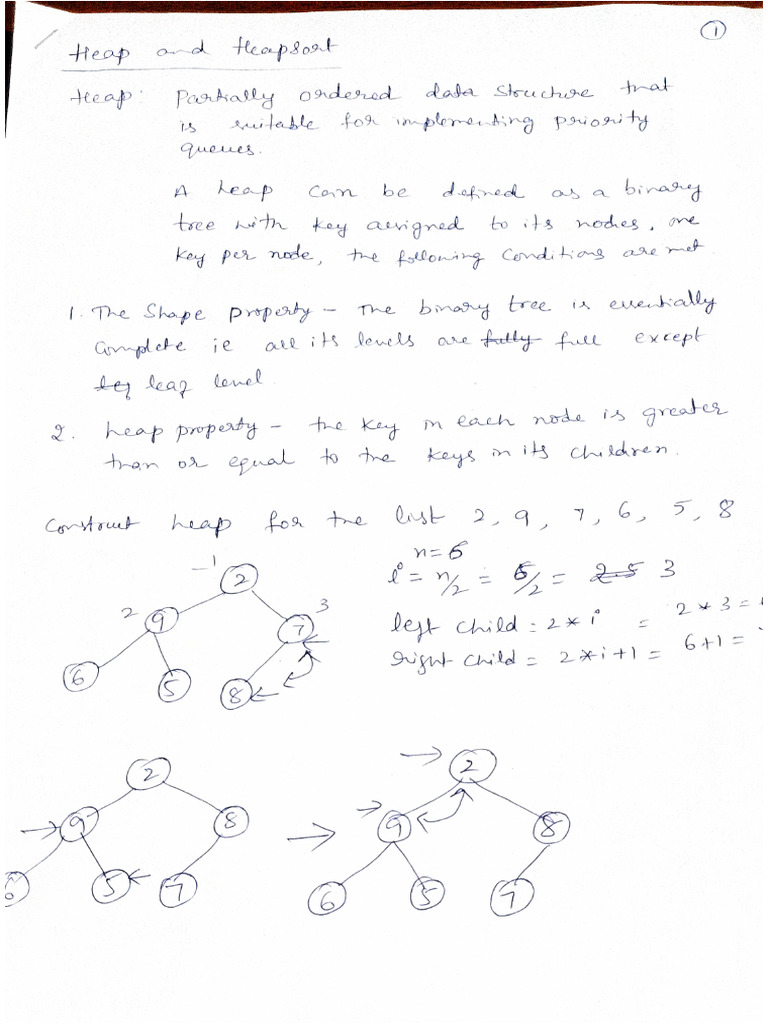 1
Heap and Heapsort
Heap: Partially ordered data structure that
is suitable for implementing priority
queues.
A heap can be defined as a binary
tree with key assigned to its nodes, one
key per node, the following conditions are met
1. The Shape property – The binary tree is essentially
complete ie all its levels are fully full except
leaf level.
2. heap property – the key in each node is greater
than or equal to the keys in its children.
Construct heap for the list 2, 9, 7, 6, 5, 8
n=6
i = n/2 = 6/2 = 2.5 3
left child = 2*i = 2*3=
right child = 2*i+1 = 6+1=
1 2
2 9 3 7
6 5 8
2 2
9 8 9 8
6 5 7 6 5 7